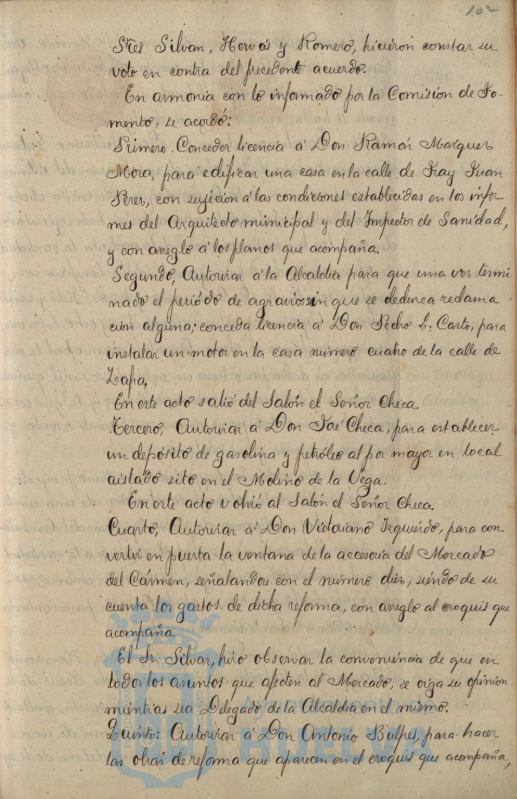 102
Sres Silvan, Hervás y Romero, hicieron constar su
voto en contra del precedente acuerdo.
En armonía con lo informado por la Comision de Fo-
mento, se acordó:
Primero. Conceder licencia á Don Ramón Marquez
Mora, para edificar una casa en la calle de Fray Juan
Perez, con sujeción á las condiciones establecidas en los infor-
mes del Arquitecto municipal y del Inspector de Sanidad,
y con arreglo á los planos que acompaña.
Segundo, Autorizar á la Alcaldia para que una vez termi-
nado el periódo de agravios sin que se deduzca reclama-
ción alguna; conceda licencia á Don Pedro L. Carto, para
instalar un motor en la casa número cuatro de la calle de
Zafra.
En este acto salió del Salón el Señor Checa.
Tercero, Autorizar á Don José Checa, para establecer
un depósito de gasolina y petróleo al por mayor en local
aislado sito en el Molino de la Vega.
En este acto volvió al Salón el Señor Checa.
Cuarto, Autorizar á Don Victoriano Izquierdo, para con-
vertir en puerta la ventana de la accesoria del Mercado
del Cármen, señalandose con el número diez, siendo de su
cuenta los gastos de dicha reforma, con arreglo al croquis que
acompaña.
El Sr. Silvan, hizo observar la conveniencia de que en
todos los asuntos que afecten al Mercado, se oiga su opinión
mientras sea Delegado de la Alcaldia en el mismo.
Quinto: Autorizar á Don Antonio Bulpes, para hacer
las obras de reforma que aparecen en el croquis que acompaña,
HUELVA